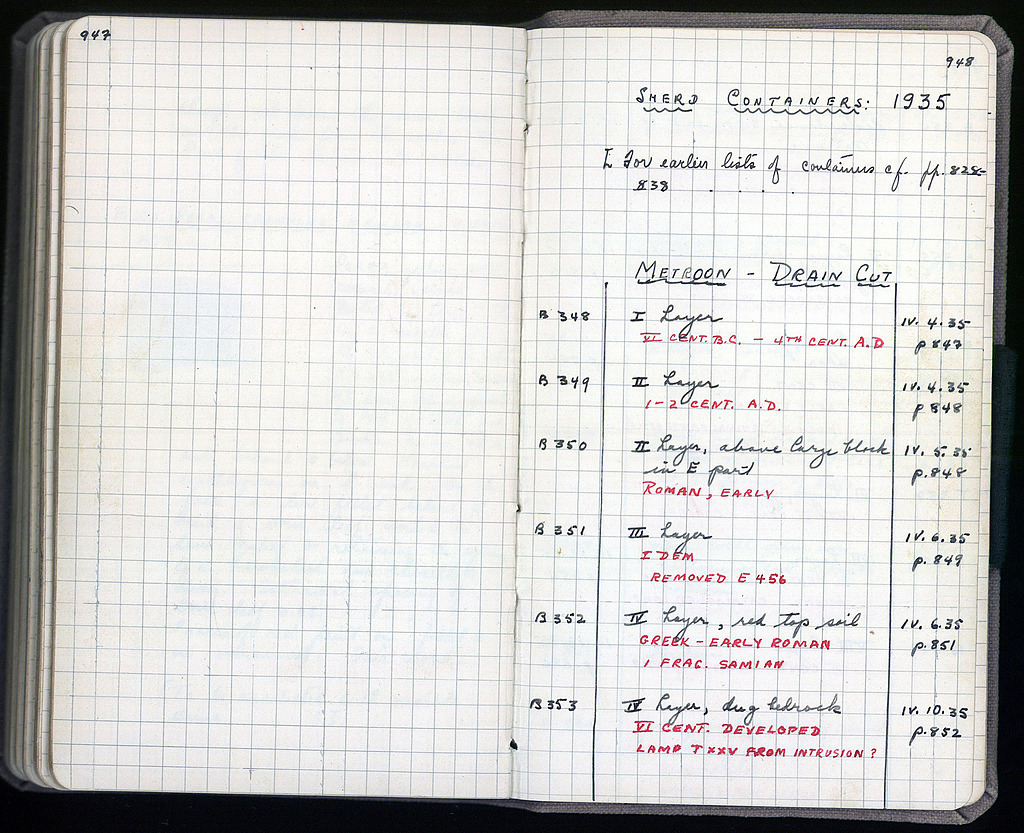 947
948
SHERD CONTAINERS: 1935
I For earlier lists of containers cf. pp. 828-
838 . . . .
METROON - DRAIN CUT
B 348 I Layer IV. 4. 35
VI CENT. B.C. - 4TH CENT. A.D p 847
B 349 II Layer IV. 4. 35
1-2 CENT. A.D. p 848
B 350 II Layer, above large block IV. 5. 35
in E part p. 848
ROMAN, EARLY
B 351 III Layer IV. 6. 35
IDEM p. 849
REMOVED E 456
B 352 IV Layer, red top soil IV. 6. 35
GREEK - EARLY ROMAN p. 851
1 FRAG. SAMIAN
B 353 IV Layer, dug bedrock IV. 10. 35
VI CENT. DEVELOPED p. 852
LAMP T XXV FROM INTRUSION ?